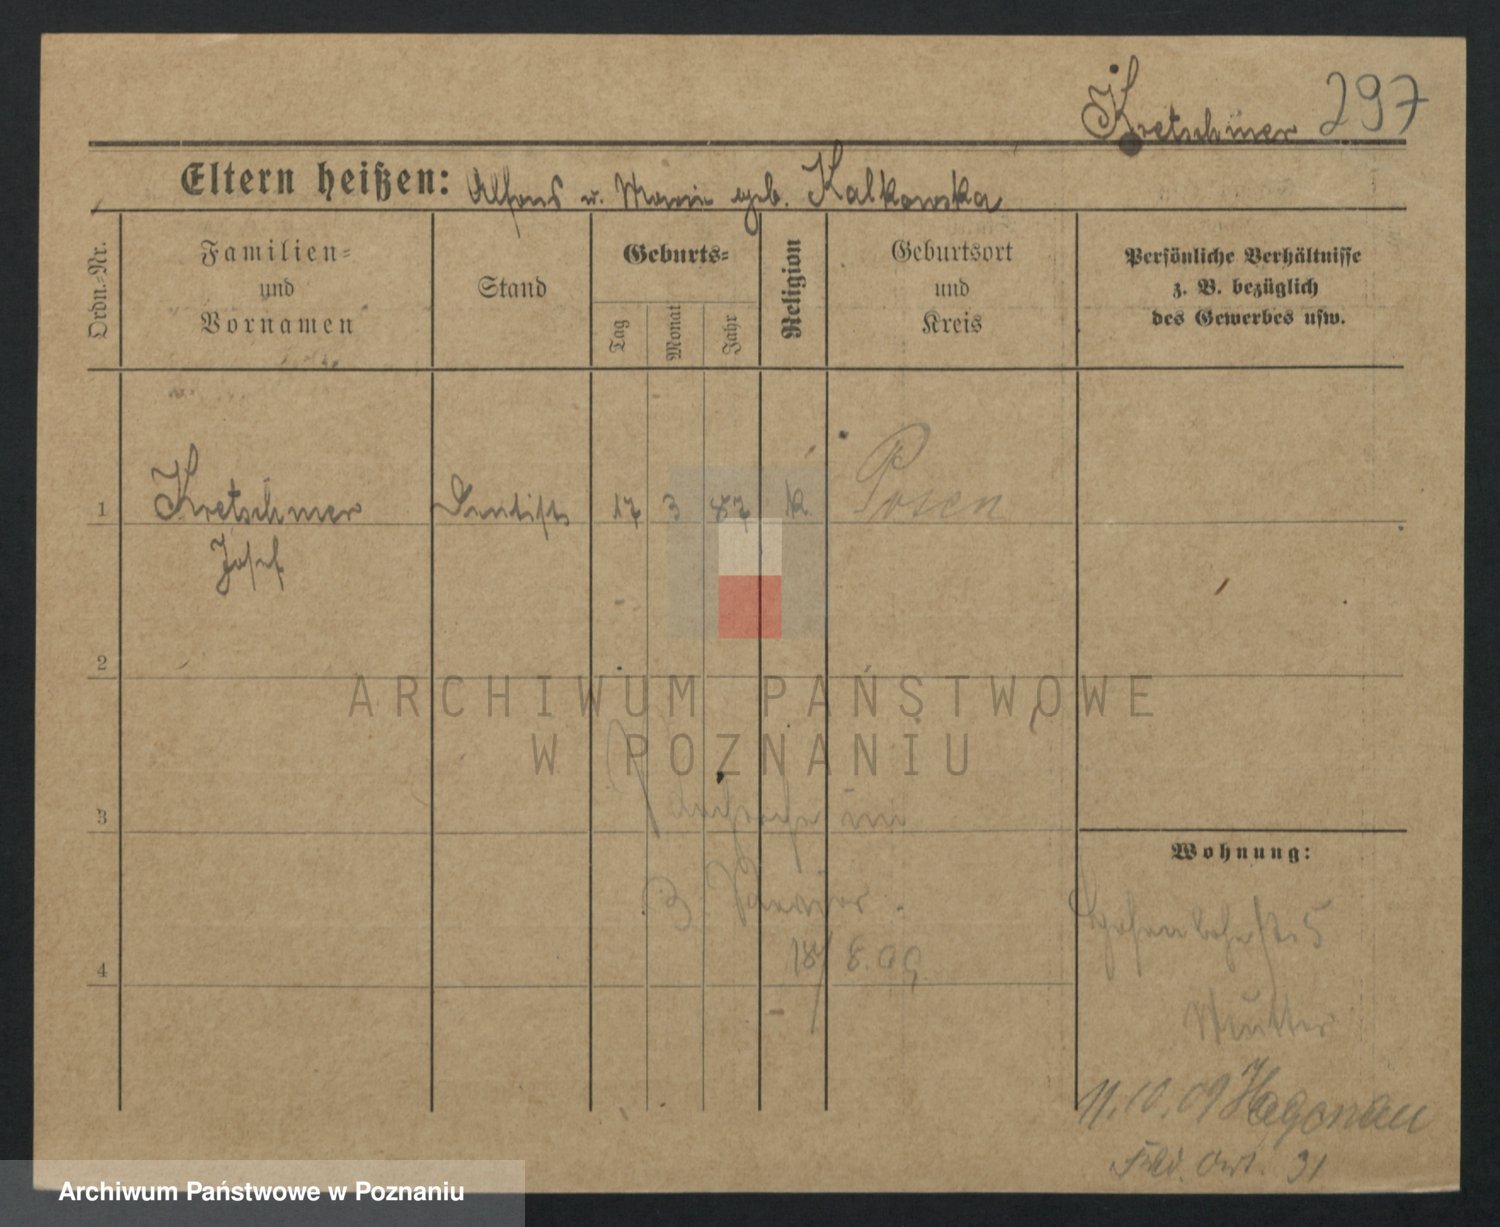 Kretschmer 297
Eltern heißen: Alfons u. Marie geb. Kalkowska
Ordn.-Nr.
Familien-
und
Vornamen
Stand
Geburts-
Tag
Monat
Jahr
Religion
Geburtsort
und
Kreis
Persönliche Verhältnisse
z. B. bezüglich
des Gewerbes usw.
1 Kretschmer Dentist 17 3 87 k Posen
Josef
2
ARCHIWUM PAŃSTWOWE
W POZNANIU
3
im
Wohnung:
18/8.09.
4
Mutter
11.10.09 Hagenau
Feld. Art. 31
Archiwum Państwowe w Poznaniu